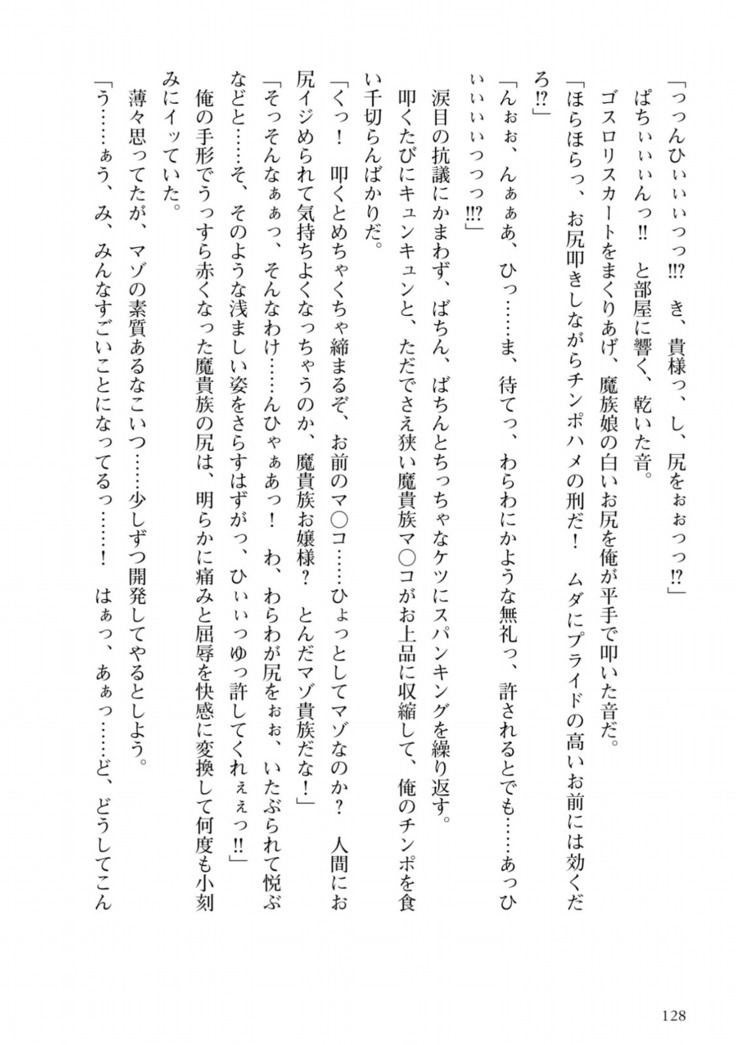 「っっんひぃぃぃっっ!!? き、貴様っ、し、尻をぉぉっっ!?」
ぱちぃぃぃんっ!! と部屋に響く、乾いた音。
ゴスロリスカートをまくりあげ、魔族娘の白いお尻を俺が平手で叩いた音だ。
「ほらほらっ、お尻叩きしながらチンポハメの刑だ! ムダにプライドの高いお前には効くだ
ろ!?」
「んぉぉ、んぁぁあ、ひっ……ま、待てっ、わらわにかような無礼っ、許されるとでも……あっひ
ぃぃぃぃっつっ!!?」
涙目の抗議にかまわず、ばちん、ばちんとちっちゃなケツにスパンキングを繰り返す。
叩くたびにキュンキュンと、ただでさえ狭い魔貴族マ〇コがお上品に収縮して、俺のチンポを食
い千切らんばかりだ。
「くっ! 叩くとめちゃくちゃ締まるぞ、お前のマ〇コ……ひょっとしてマゾなのか? 人間にお
尻イジめられて気持ちよくなっちゃうのか、魔貴族お嬢様? とんだマゾ貴族だな!」
「そっそんなぁぁっ、そんなわけ……んひゃぁあっ! わ、わらわが尻をぉぉ、いたぶられて悦ぶ
などと……そ、そのような浅ましい姿をさらすはずがっ、ひぃぃっゆっ許してくれぇぇっ!!」
俺の手形でうっすら赤くなった魔貴族の尻は、明らかに痛みと屈辱を快感に変換して何度も小刻
みにイッていた。
薄々思ってたが、マゾの素質あるなこいつ……少しずつ開発してやるとしよう。
「う……ぁう、み、みんなすごいことになってるっ……! はぁっ、あぁっ……ど、どうしてこん
128